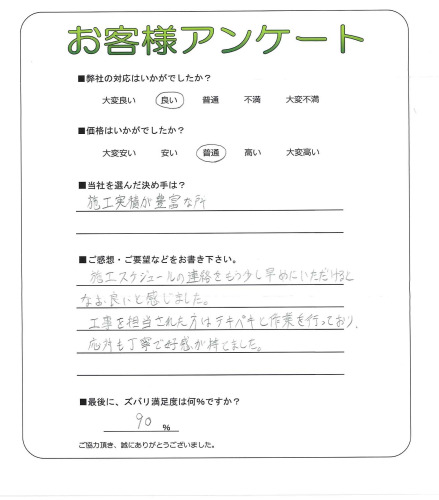 お客様アンケート
■弊社の対応はいかがでしたか？
大変良い 良い 普通 不満 大変不満
■価格はいかがでしたか？
大変安い 安い 普通 高い 大変高い
■当社を選んだ決め手は？
施工実積が豊富な所
■ご感想・ご要望などをお書き下さい。
施工スケジュールの連絡をもう少し早めにいただけると
なお、良いと感じました。
工事を担当された方はテキパキと作業を行っており、
応対も丁寧で好感が持てました。
■最後に、ズバリ満足度は何%ですか？
90 %
ご協力頂き、誠にありがとうございました。